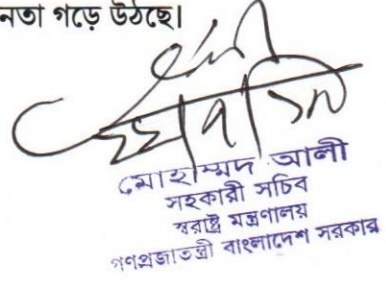 নতা গড়ে উঠছে।
মোহাম্মদ আলী
সহকারী সচিব
স্বরাষ্ট্র মন্ত্রণালয়
গণপ্রজাতন্ত্রী বাংলাদেশ সরকার